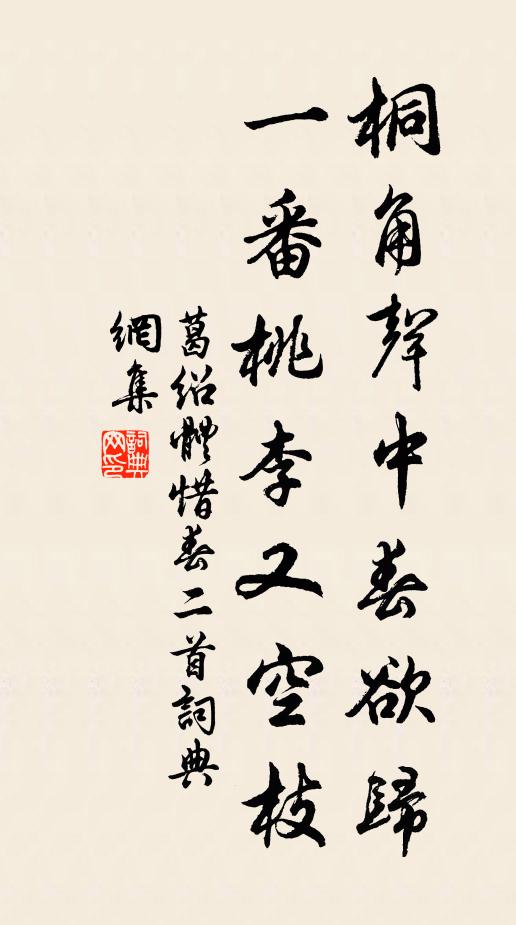 桐角聲中春欲歸
一番桃李又空枝
葛紹體惜春二首詞典
網集
詞典網印